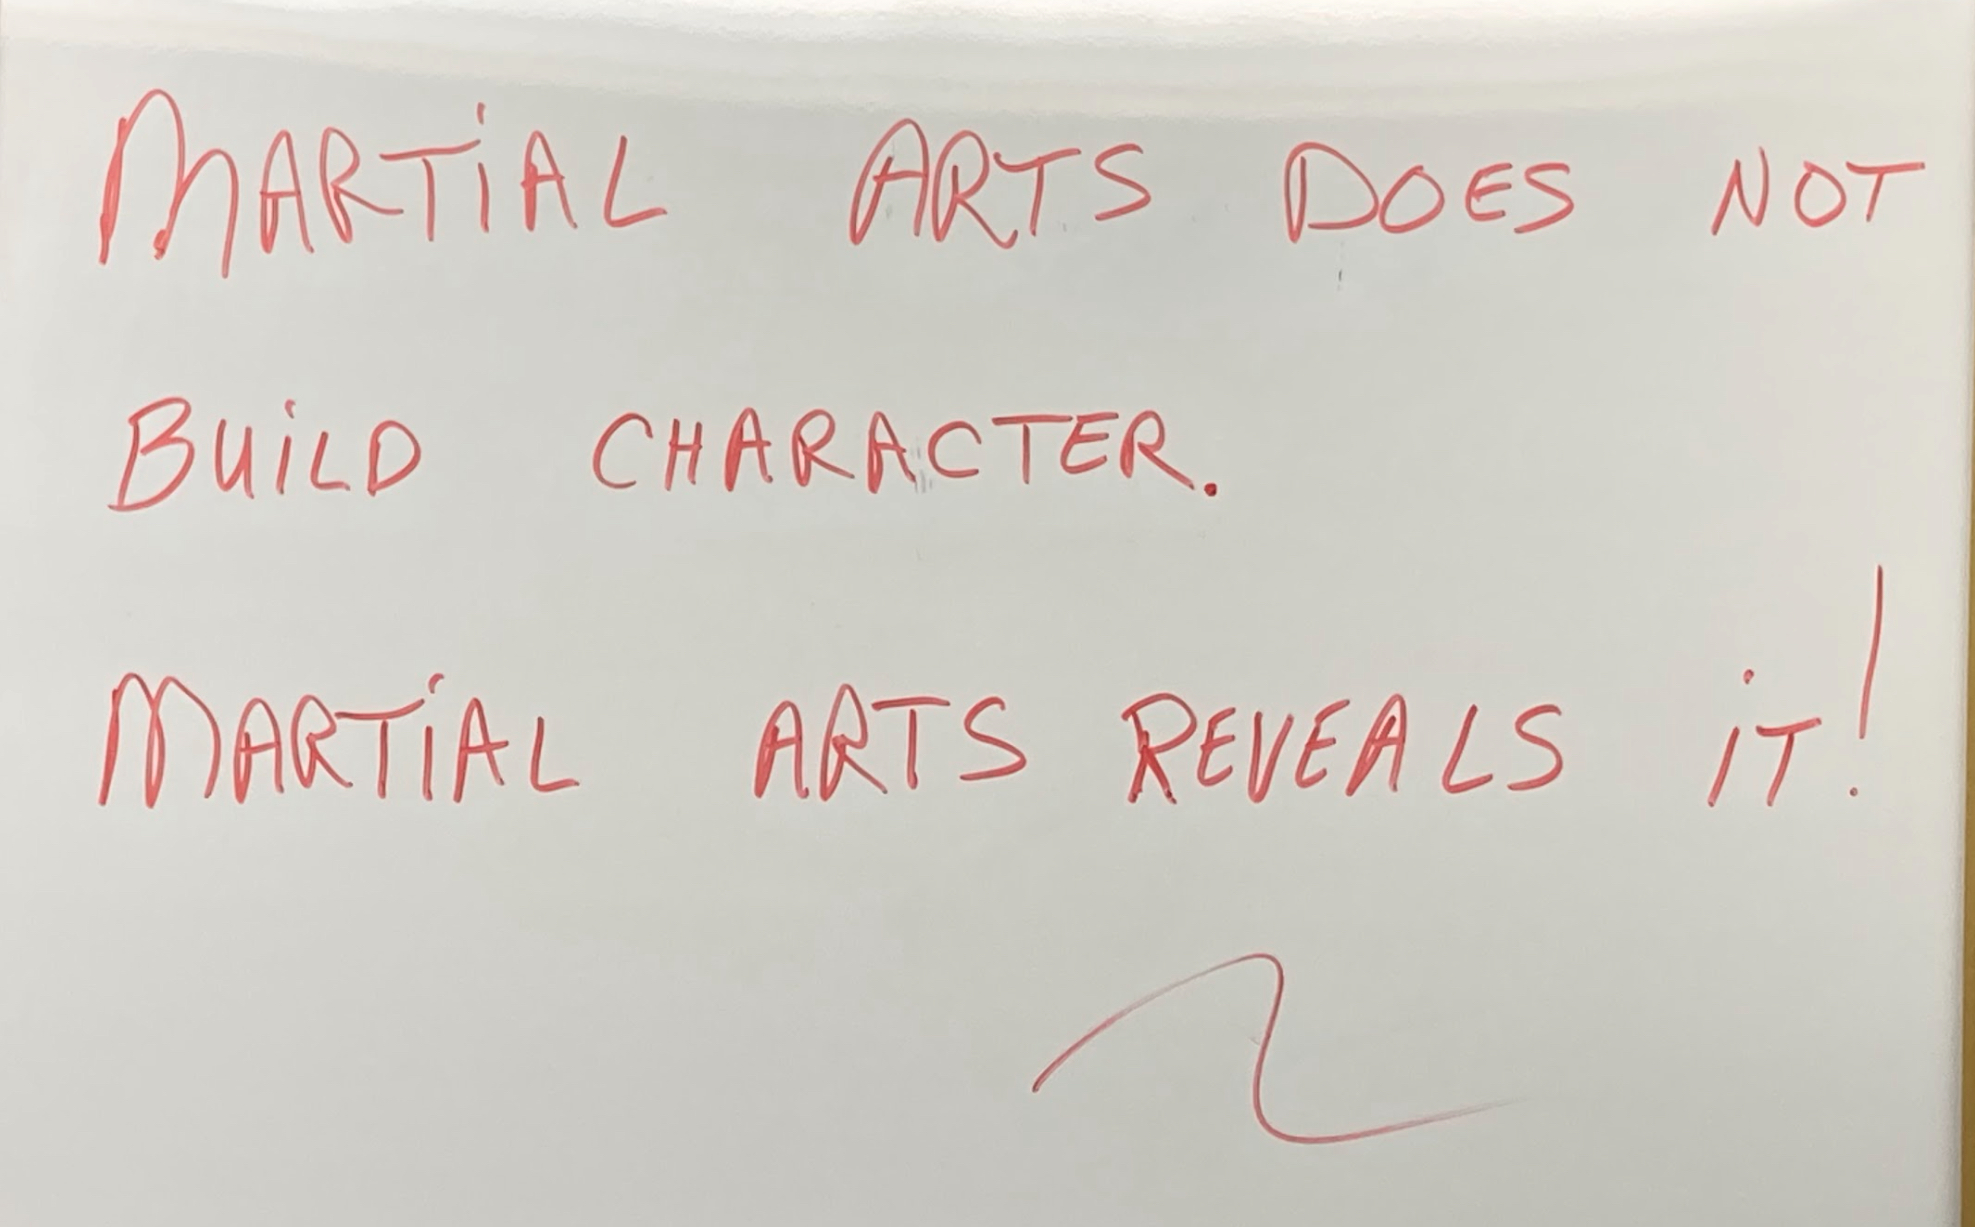 MARTiAL ARTS DOES NOT
BUiLD CHARACTER.
MARTiAL ARTS REVEALS iT!